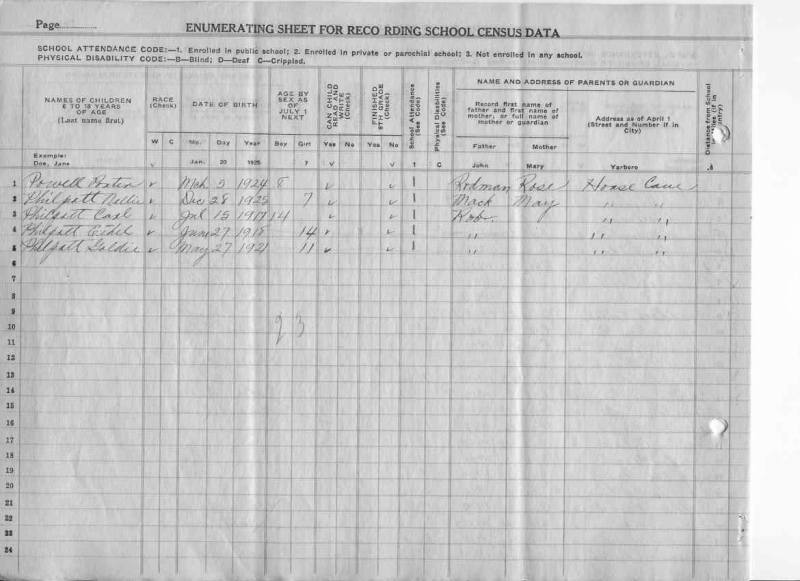 Page
ENUMERATING SHEET FOR RECO RDING SCHOOL CENSUS DATA
SCHOOL ATTENDANCE CODE:—1. Enrolled in public school; 2. Enrolled in private or parochial school; 3. Not enrolled in any school.
PHYSICAL DISABILITY CODE:—B—Blind; D—Deaf C—Crippled.
NAMES OF CHILDREN 6 TO 18 YEARS OF AGE (Last name first)
RACE (Check)
DATE OF BIRTH
AGE BY SEX AS OF JULY 1 NEXT
CAN CHILD READ AND WRITE (Check)
FINISHED 8TH GRADE (Check)
School Attendance (See Code)
Physical Disabilities (See Code)
NAME AND ADDRESS OF PARENTS OR GUARDIAN
Record first name of father and first name of mother, or full name of mother or guardian
Address as of April 1 (Street and Number if in City)
Distance from School
W C Mo. Day Year Boy Girl Yes No Yes No Father Mother
Example: Doe, Jane v Jan. 20 1925 7 v v 1 C John Mary Yarboro .8
1 Powell v Mch 5 1924 8 v v 1 Rodman Rose Horse Cave
2 Philpott Nellie v Dec 28 1925 7 v v 1 Mack May " "
3 Philpott Carl v Jul 15 1917 14 v v 1 Rob. " "
4 Philpott Ethel v June 27 1918 14 v v 1 " " "
5 Philpott Goldie v May 27 1921 11 v v 1 " " "
6
7
8
9
10
11
12
13
14
15
16
17
18
19
20
21
22
23
24